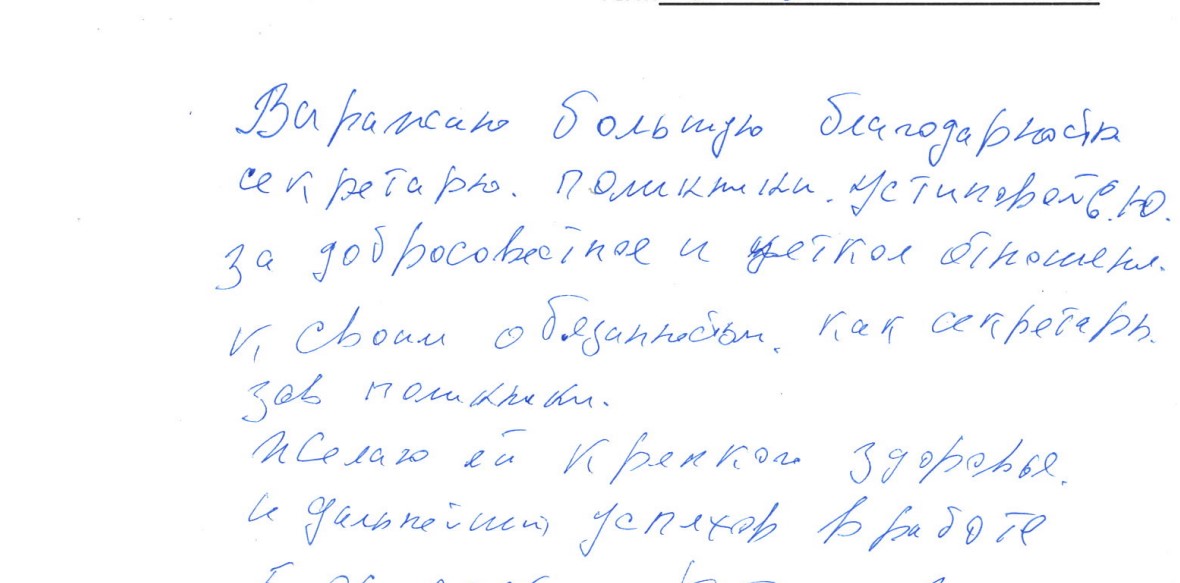 Выражаю большую благодарность
секретарю. поликлиники. Устиновой С.Ю.
за добросовестное и четкое отношени.
к своим обязанностям. как секретарь.
зав поликлиники.
Желаю ей крепкого здоровья.
и дальнейших успехов в работе